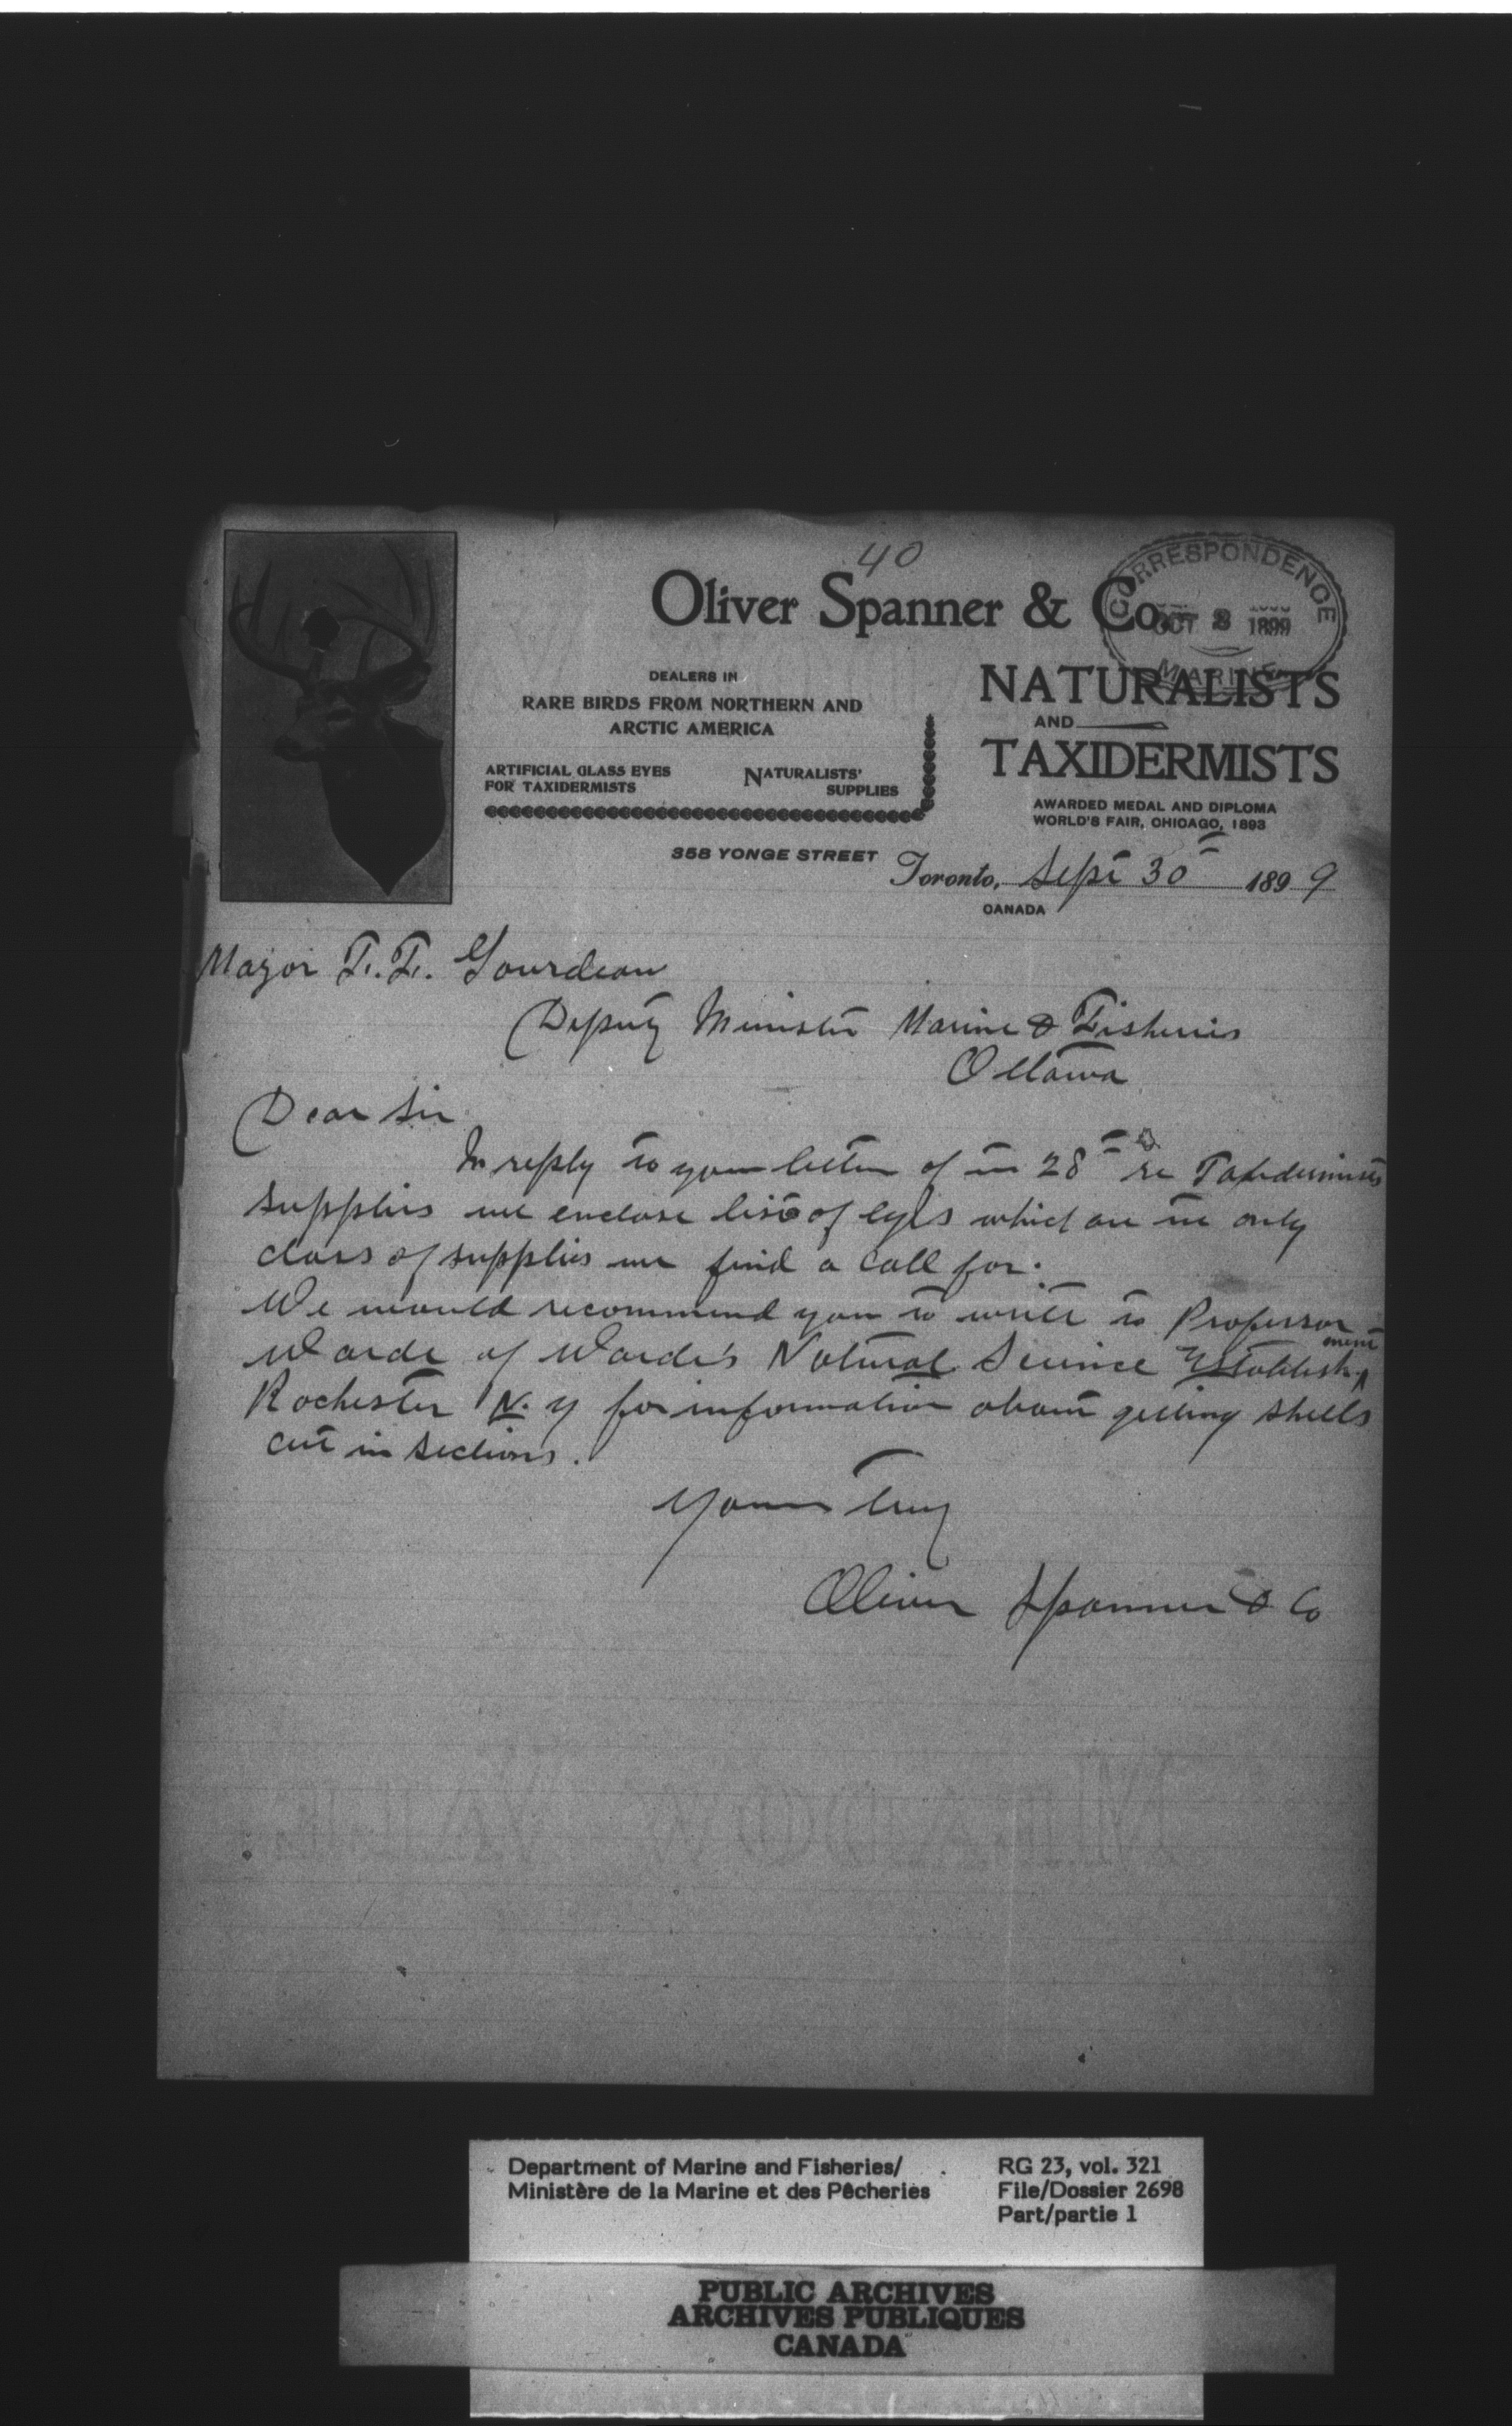 40
Oliver Spanner & Co.
CORRESPONDENCE
OCT 3 1899
MARINE
DEALERS IN
RARE BIRDS FROM NORTHERN AND
ARCTIC AMERICA
ARTIFICIAL GLASS EYES
FOR TAXIDERMISTS
NATURALISTS'
SUPPLIES
NATURALISTS
AND
TAXIDERMISTS
AWARDED MEDAL AND DIPLOMA
WORLD'S FAIR, CHICAGO, 1893
358 YONGE STREET
Toronto, Sept 30 1899
CANADA
Major F. F. Gourdeau
Deputy Minister Marine & Fisheries
Ottawa
Dear Sir
In reply to your letter of the 28th re Taxidermists
supplies we enclose list of eyes which are the only
class of supplies we find a call for.
We would recommend you to write to Professor
Warde of Warde's Natural Science Establishment
Rochester N. Y for information about getting shells
cut in sections.
Yours truly
Oliver Spanner & Co
MEADOW VALE
Department of Marine and Fisheries/
Ministère de la Marine et des Pêcheries
RG 23, vol. 321
File/Dossier 2698
Part/partie 1
PUBLIC ARCHIVES
ARCHIVES PUBLIQUES
CANADA